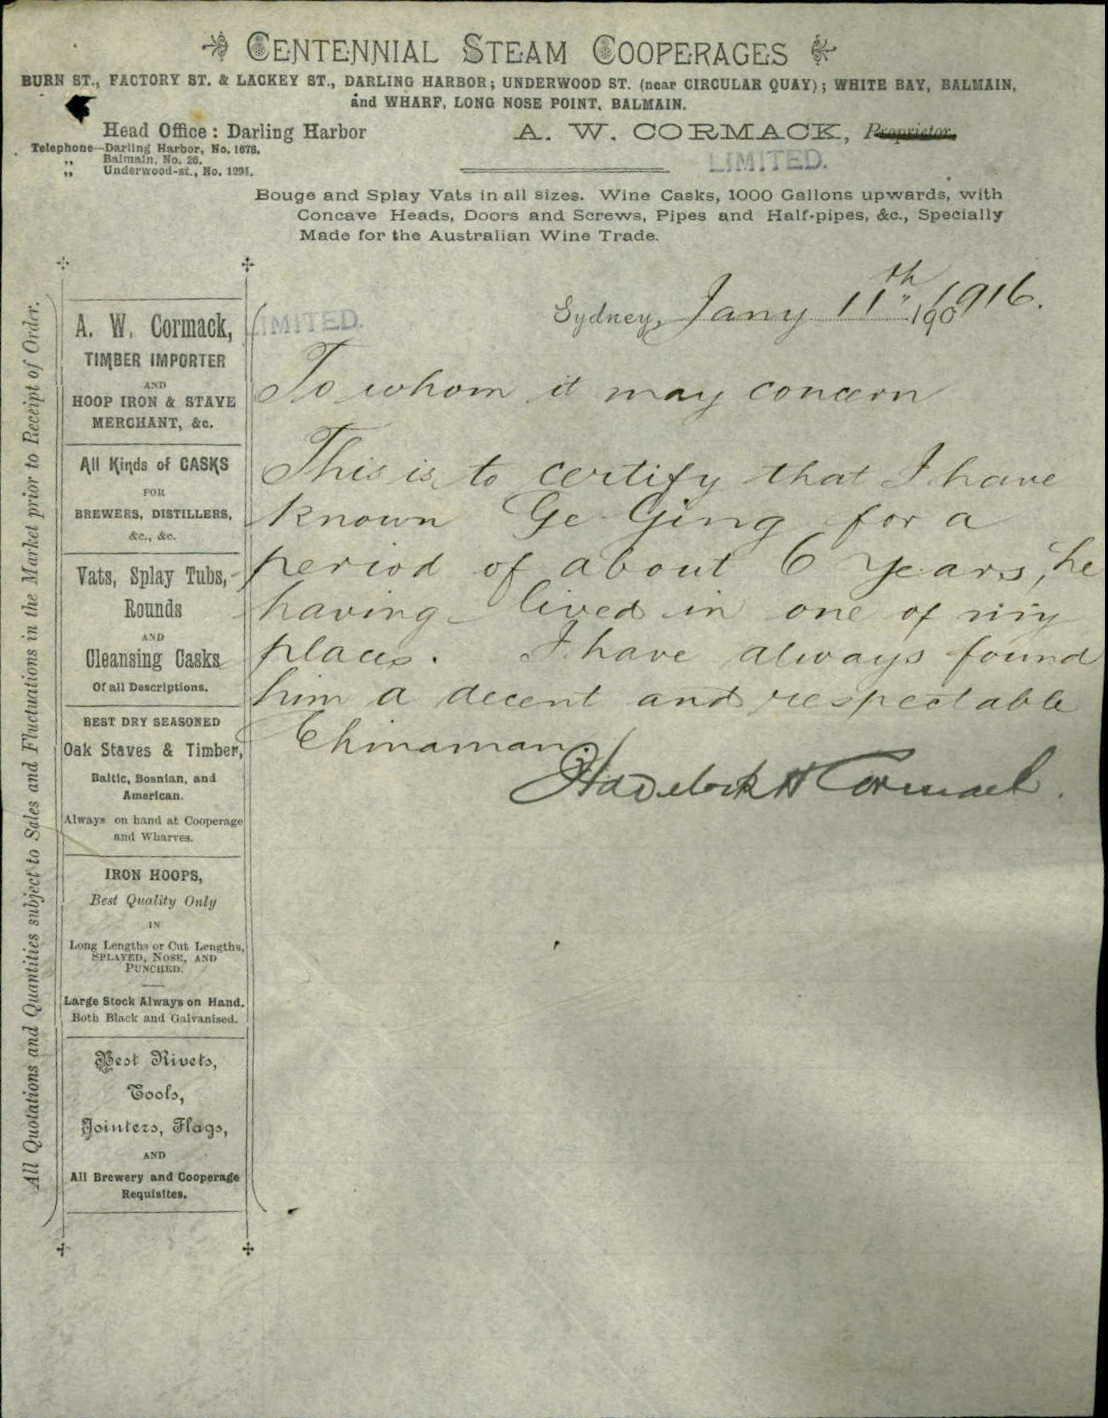 CENTENNIAL STEAM COOPERAGES
BURN ST., FACTORY ST. & LACKEY ST., DARLING HARBOR; UNDERWOOD ST. (near CIRCULAR QUAY); WHITE BAY, BALMAIN,
and WHARF, LONG NOSE POINT, BALMAIN.
Head Office: Darling Harbor
A. W. CORMACK, Proprietor.
LIMITED.
Telephone—Darling Harbor, No. 1678.
„ Balmain, No. 26.
„ Underwood-st., No. 1291.
Bouge and Splay Vats in all sizes. Wine Casks, 1000 Gallons upwards, with
Concave Heads, Doors and Screws, Pipes and Half-pipes, &c., Specially
Made for the Australian Wine Trade.
Sydney, Jany 11th 1901916.
To whom it may concern
This is to certify that I have
known Ge Ging for a
period of about 6 Years, he
having lived in one of my
places. I have always found
him a decent and respectable
Chinaman.
Havelock H Cormack.
All Quotations and Quantities subject to Sales and Fluctuations in the Market prior to Receipt of Order.
A. W. Cormack,
LIMITED.
TIMBER IMPORTER
AND
HOOP IRON & STAVE
MERCHANT, &c.
All Kinds of CASKS
FOR
BREWERS, DISTILLERS,
&c., &c.
Vats, Splay Tubs,
Rounds
AND
Cleansing Casks
Of all Descriptions.
BEST DRY SEASONED
Oak Staves & Timber,
Baltic, Bosnian, and
American.
Always on hand at Cooperage
and Wharves.
IRON HOOPS,
Best Quality Only
IN
Long Lengths or Cut Lengths,
SPLAYED, NOSE, AND
PUNCHED.
Large Stock Always on Hand.
Both Black and Galvanised.
Best Rivets,
Tools,
Jointers, Flags,
AND
All Brewery and Cooperage
Requisites.